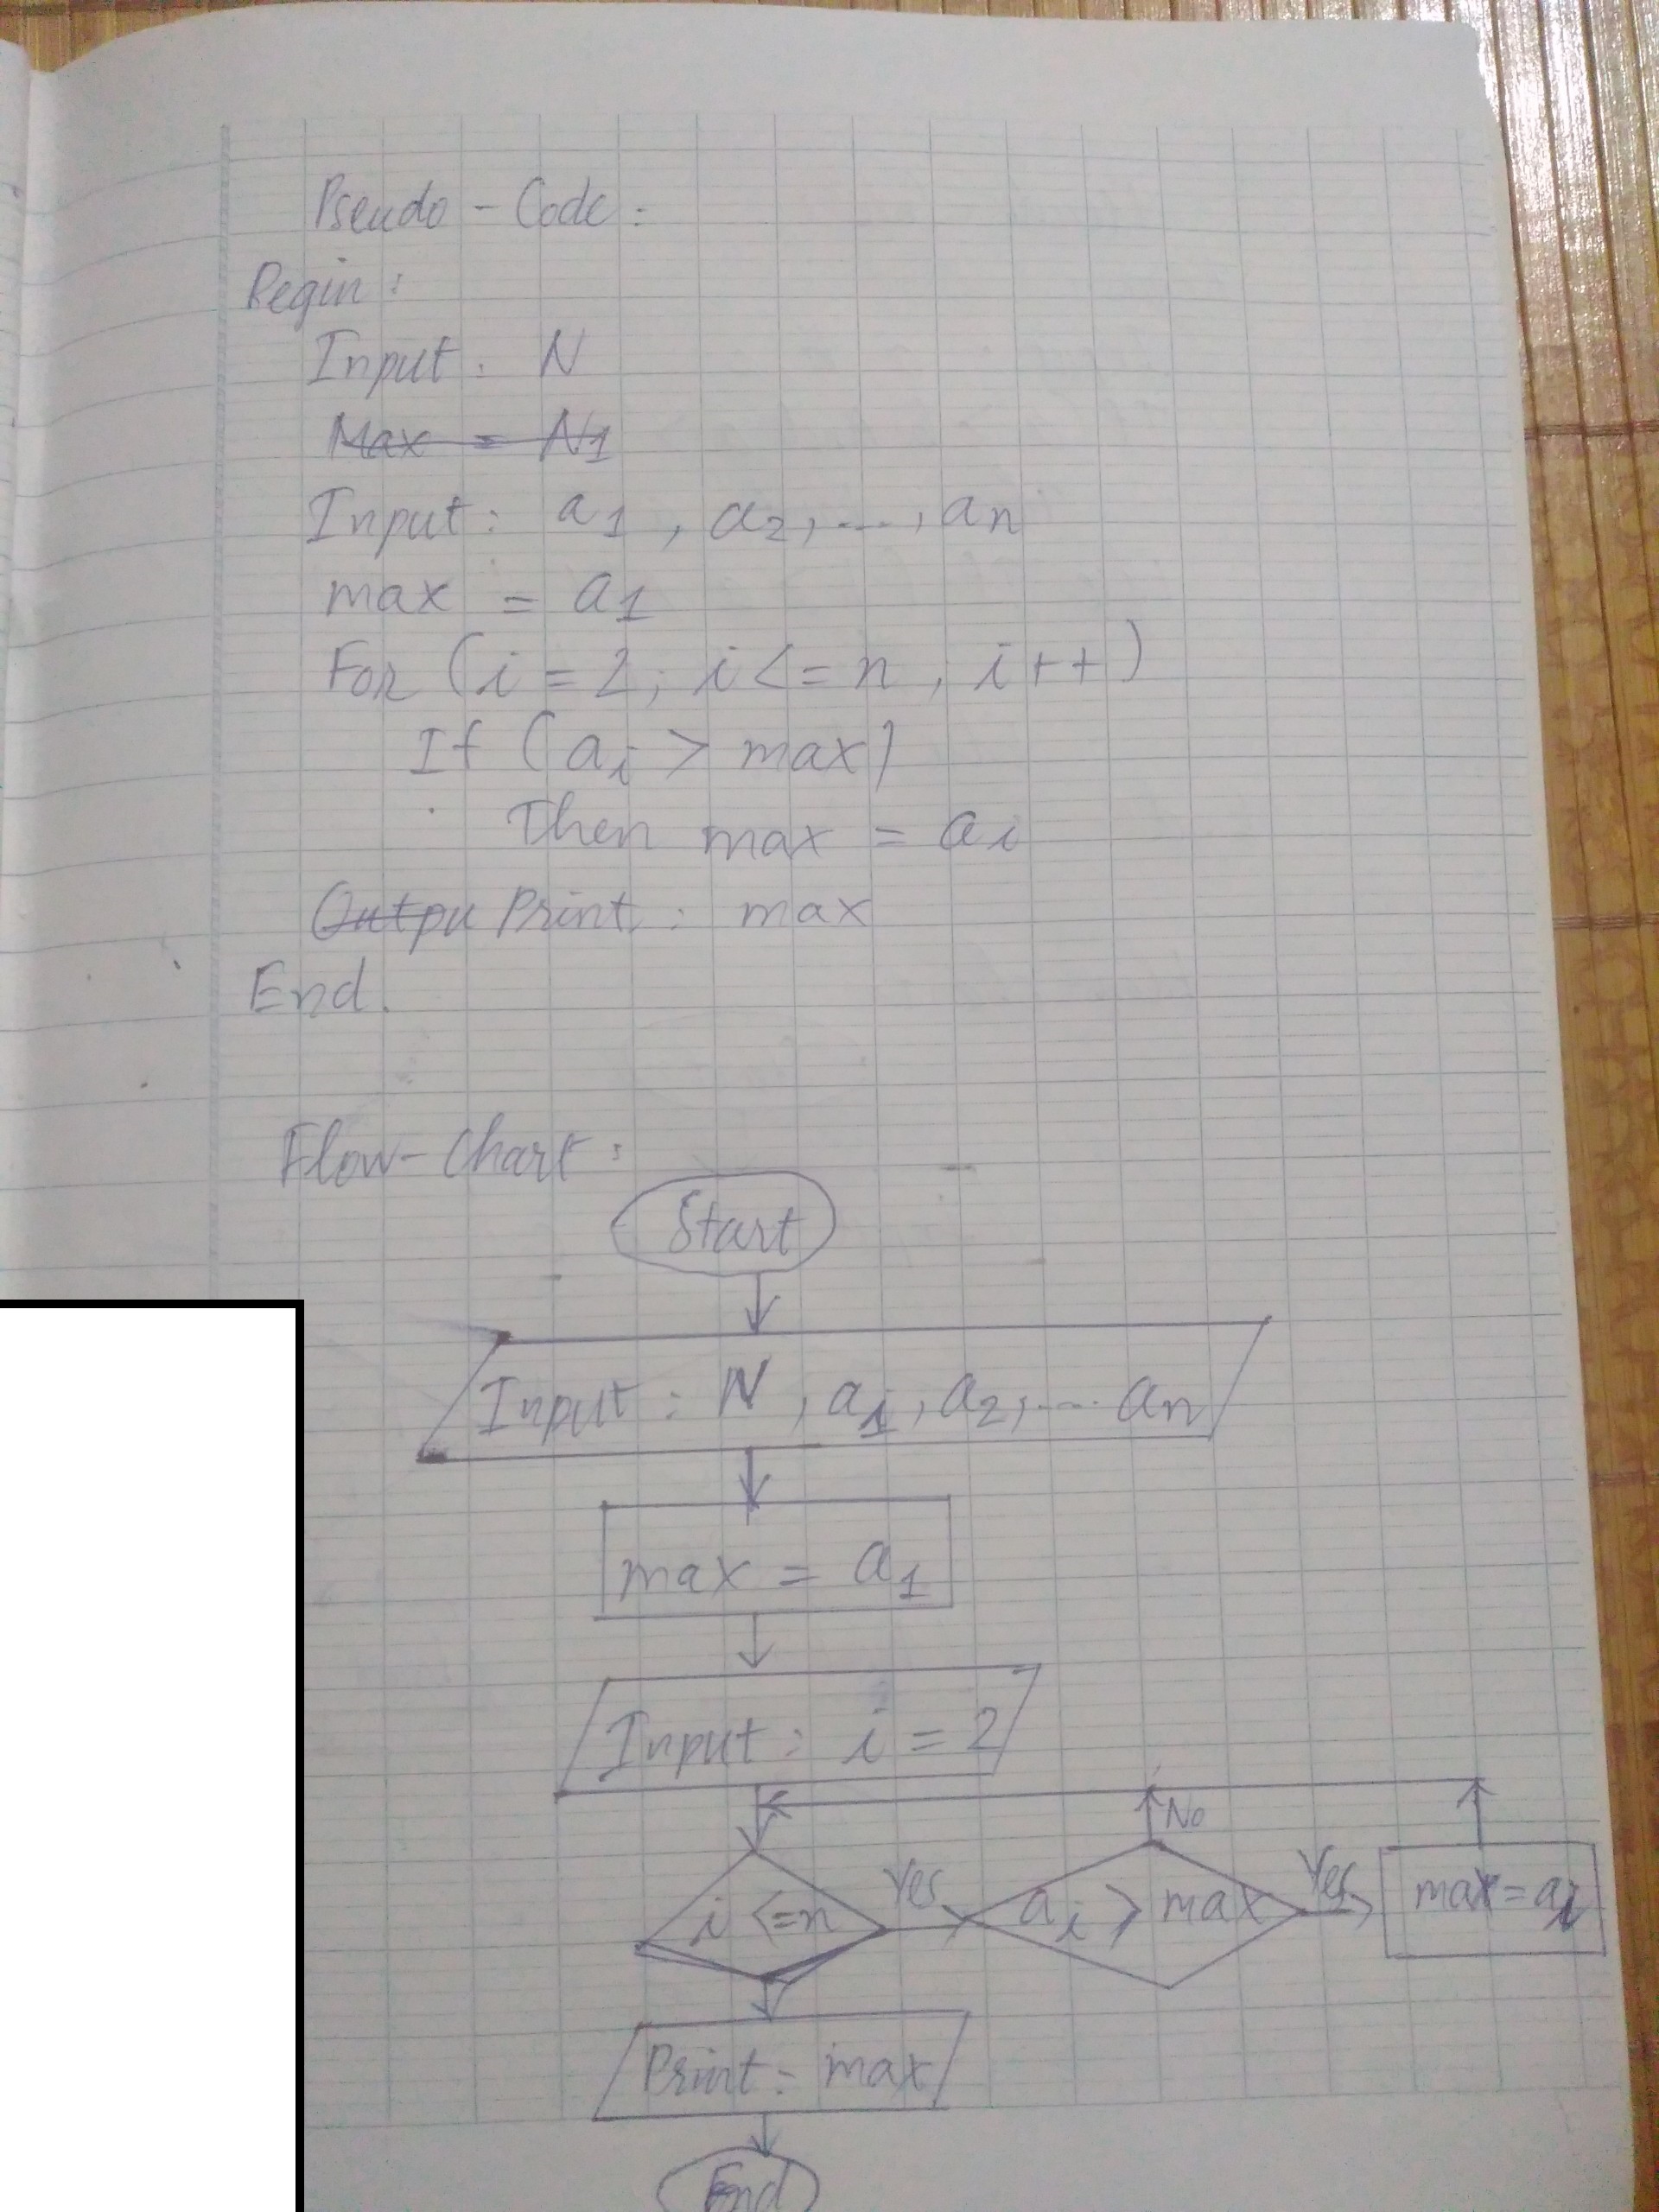 Pseudo - Code :
Begin :
Input : N
Max = N1
Input : a1 , a2 , ... , an
max = a1
For ( i = 2 ; i <= n , i ++ )
If ( ai > max )
Then max = ai
Outpu Print : max
End .
Flow - Chart :
Start
Input : N , a1 , a2 , ... an
max = a1
Input : i = 2
No
i <= n Yes ai > max Yes max = ai
Print : max
End